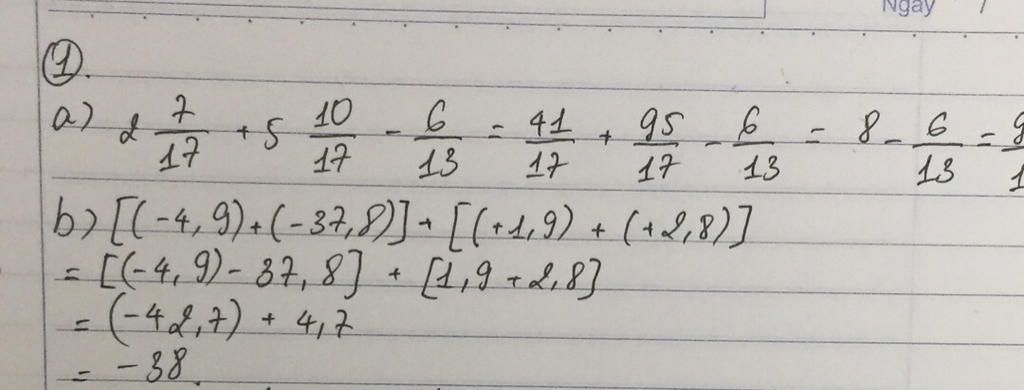 Ngày /
1.
a) 2 7/17 + 5 10/17 - 6/13 = 41/17 + 95/17 - 6/13 = 8 - 6/13 =
b) [(-4,9)+(-37,8)] + [(+1,9) + (+2,8)]
= [(-4,9) - 37,8] + [1,9 + 2,8]
= (-42,7) + 4,7
= -38.